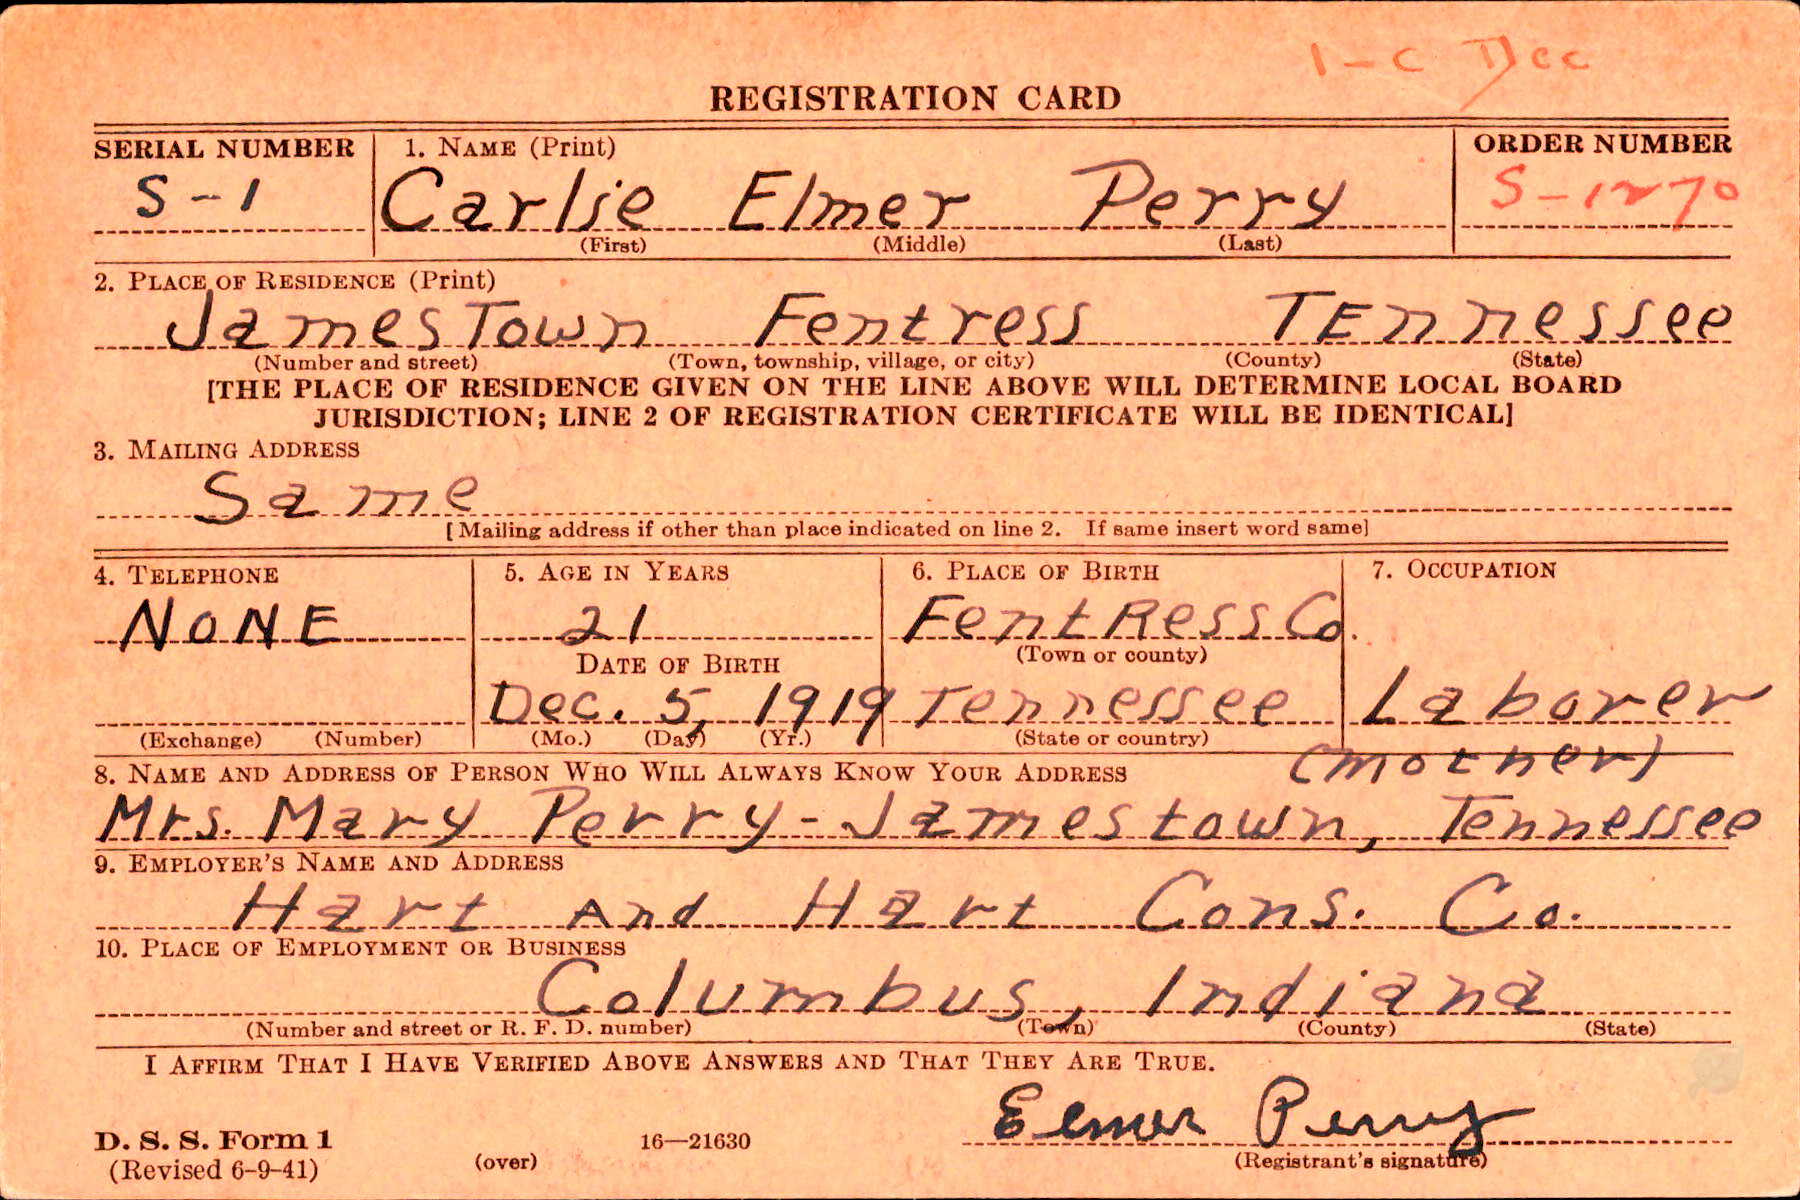 1-C Dec
REGISTRATION CARD
SERIAL NUMBER 1. NAME (Print) ORDER NUMBER
S-1 Carlie Elmer Perry S-1270
(First) (Middle) (Last)
2. PLACE OF RESIDENCE (Print)
JamesTown Fentress TEnnessee
(Number and street) (Town, township, village, or city) (County) (State)
[THE PLACE OF RESIDENCE GIVEN ON THE LINE ABOVE WILL DETERMINE LOCAL BOARD
JURISDICTION; LINE 2 OF REGISTRATION CERTIFICATE WILL BE IDENTICAL]
3. MAILING ADDRESS
Same
[Mailing address if other than place indicated on line 2. If same insert word same]
4. TELEPHONE 5. AGE IN YEARS 6. PLACE OF BIRTH 7. OCCUPATION
NONE 21 FentRess Co.
DATE OF BIRTH (Town or county)
Dec. 5, 1919 Tennessee Laborer
(Exchange) (Number) (Mo.) (Day) (Yr.) (State or country)
8. NAME AND ADDRESS OF PERSON WHO WILL ALWAYS KNOW YOUR ADDRESS (Mother)
Mrs. Mary Perry - Jamestown, Tennessee
9. EMPLOYER'S NAME AND ADDRESS
Hart And Hart Cons. Co.
10. PLACE OF EMPLOYMENT OR BUSINESS
Columbus, Indiana
(Number and street or R. F. D. number) (Town) (County) (State)
I AFFIRM THAT I HAVE VERIFIED ABOVE ANSWERS AND THAT THEY ARE TRUE.
Elmer Perry
D. S. S. Form 1 16—21630
(Revised 6-9-41) (over) (Registrant's signature)